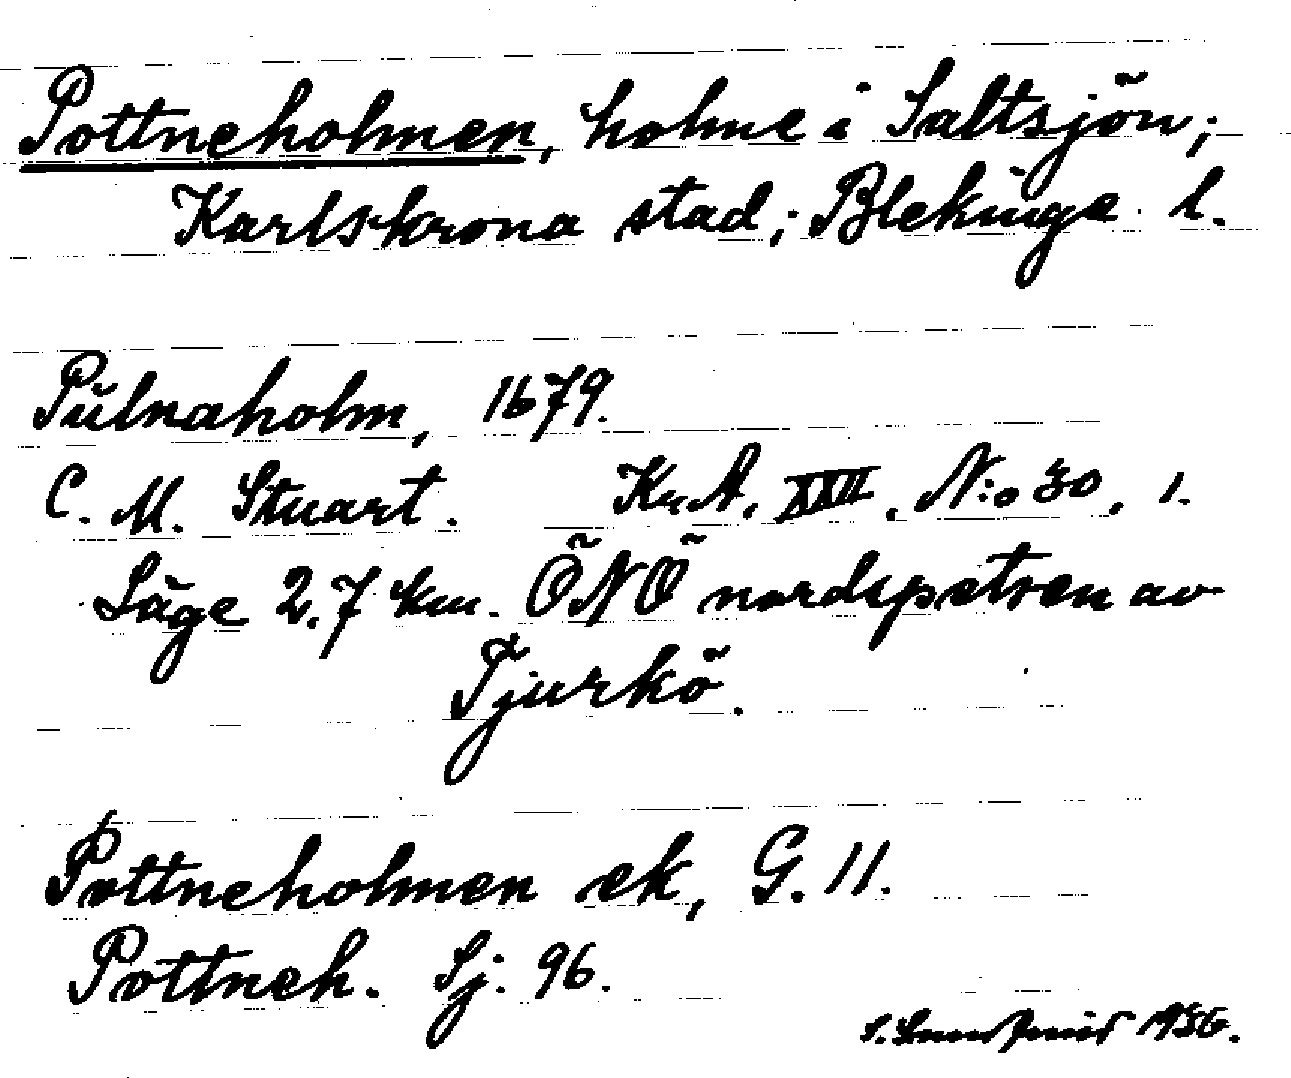 Pottneholmen, holme i Saltsjön;
Karlskrona stad; Blekinge l.
Pŭlnaholm, 1679.
C. M. Stuart. Kr.A. XXII. N:o 30, 1.
Läge 2.7 km. ÖNÖ nordspetsen av
Tjurkö.
Pottneholmen ek, G. 11.
Pottneh. Sj: 96.
S. 1936.